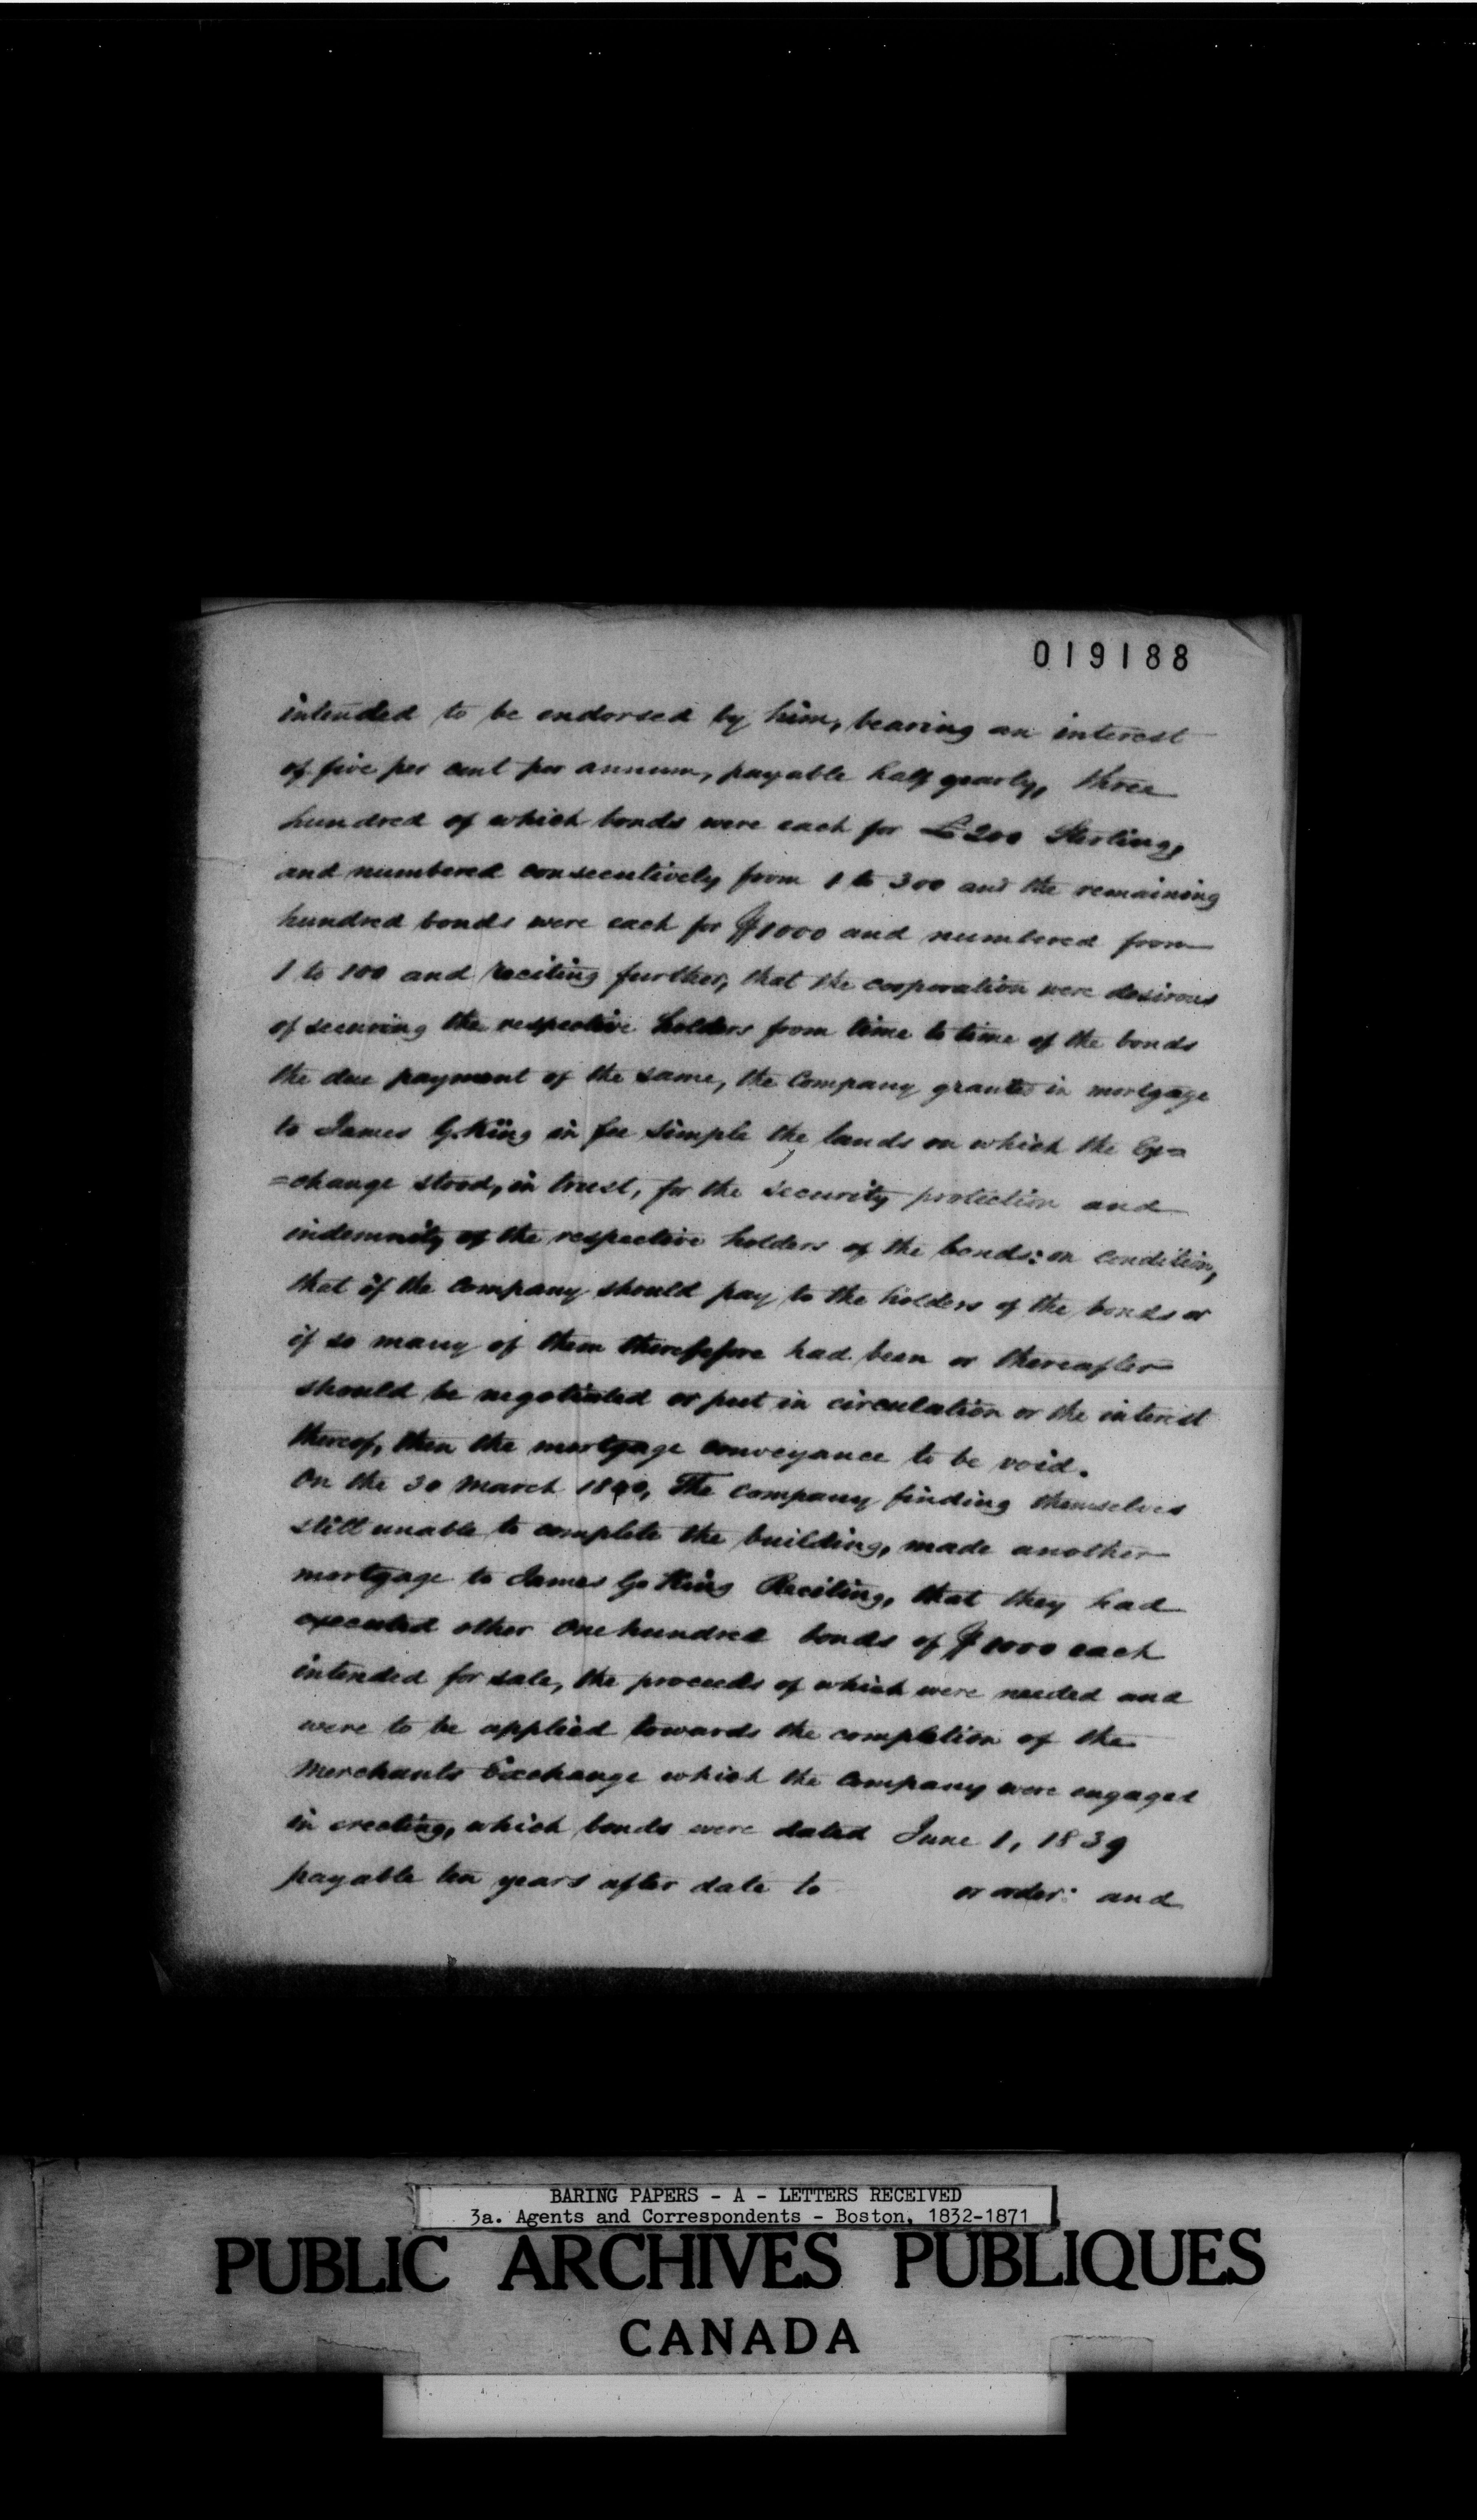 019188
intended to be endorsed by him, bearing an interest
of five per cent per annum, payable half yearly, three
hundred of which bonds were each for £200 Sterling,
and numbered consecutively from 1 to 300 and the remaining
hundred bonds were each for $1000 and numbered from
1 to 100 and reciting further, that the corporation were desirous
of securing the respective holders from time to time of the bonds
the due payment of the same, the Company granted in mortgage
to James G. King in fee simple the lands on which the Ex=
=change stood, in trust, for the security protection and
indemnity of the respective holders of the bonds: on condition,
that if the company should pay to the holders of the bonds or
if so many of them had been or thereafter
should be negotiated or put in circulation or the interest
thereof, then the mortgage conveyance to be void.
On the 30 March 1840, The company finding themselves
still unable to complete the building, made another
mortgage to James G. King Reciting, that they had
executed other one hundred bonds of $1000 each
intended for sale, the proceeds of which were needed and
were to be applied towards the completion of the
Merchants Exchange which the company were engaged
in erecting, which bonds were dated June 1, 1839
payable ten years after date to or order: and
BARING PAPERS - A - LETTERS RECEIVED
3a. Agents and Correspondents - Boston, 1832-1871
PUBLIC ARCHIVES PUBLIQUES
CANADA